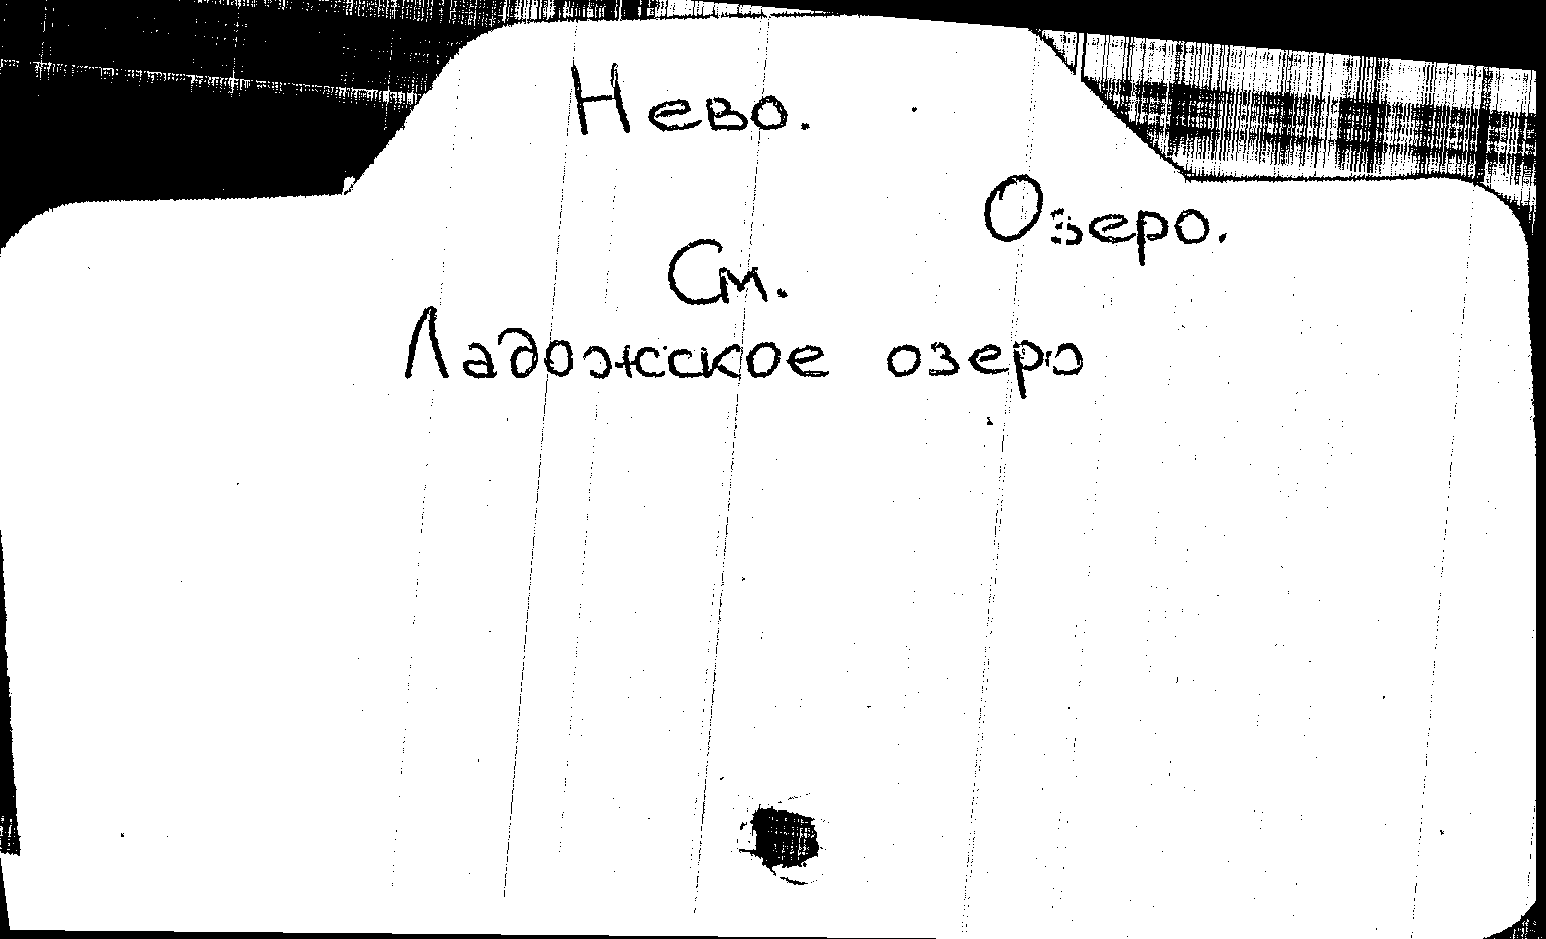 Нево.
Озеро.
См.
Ладожское озеро